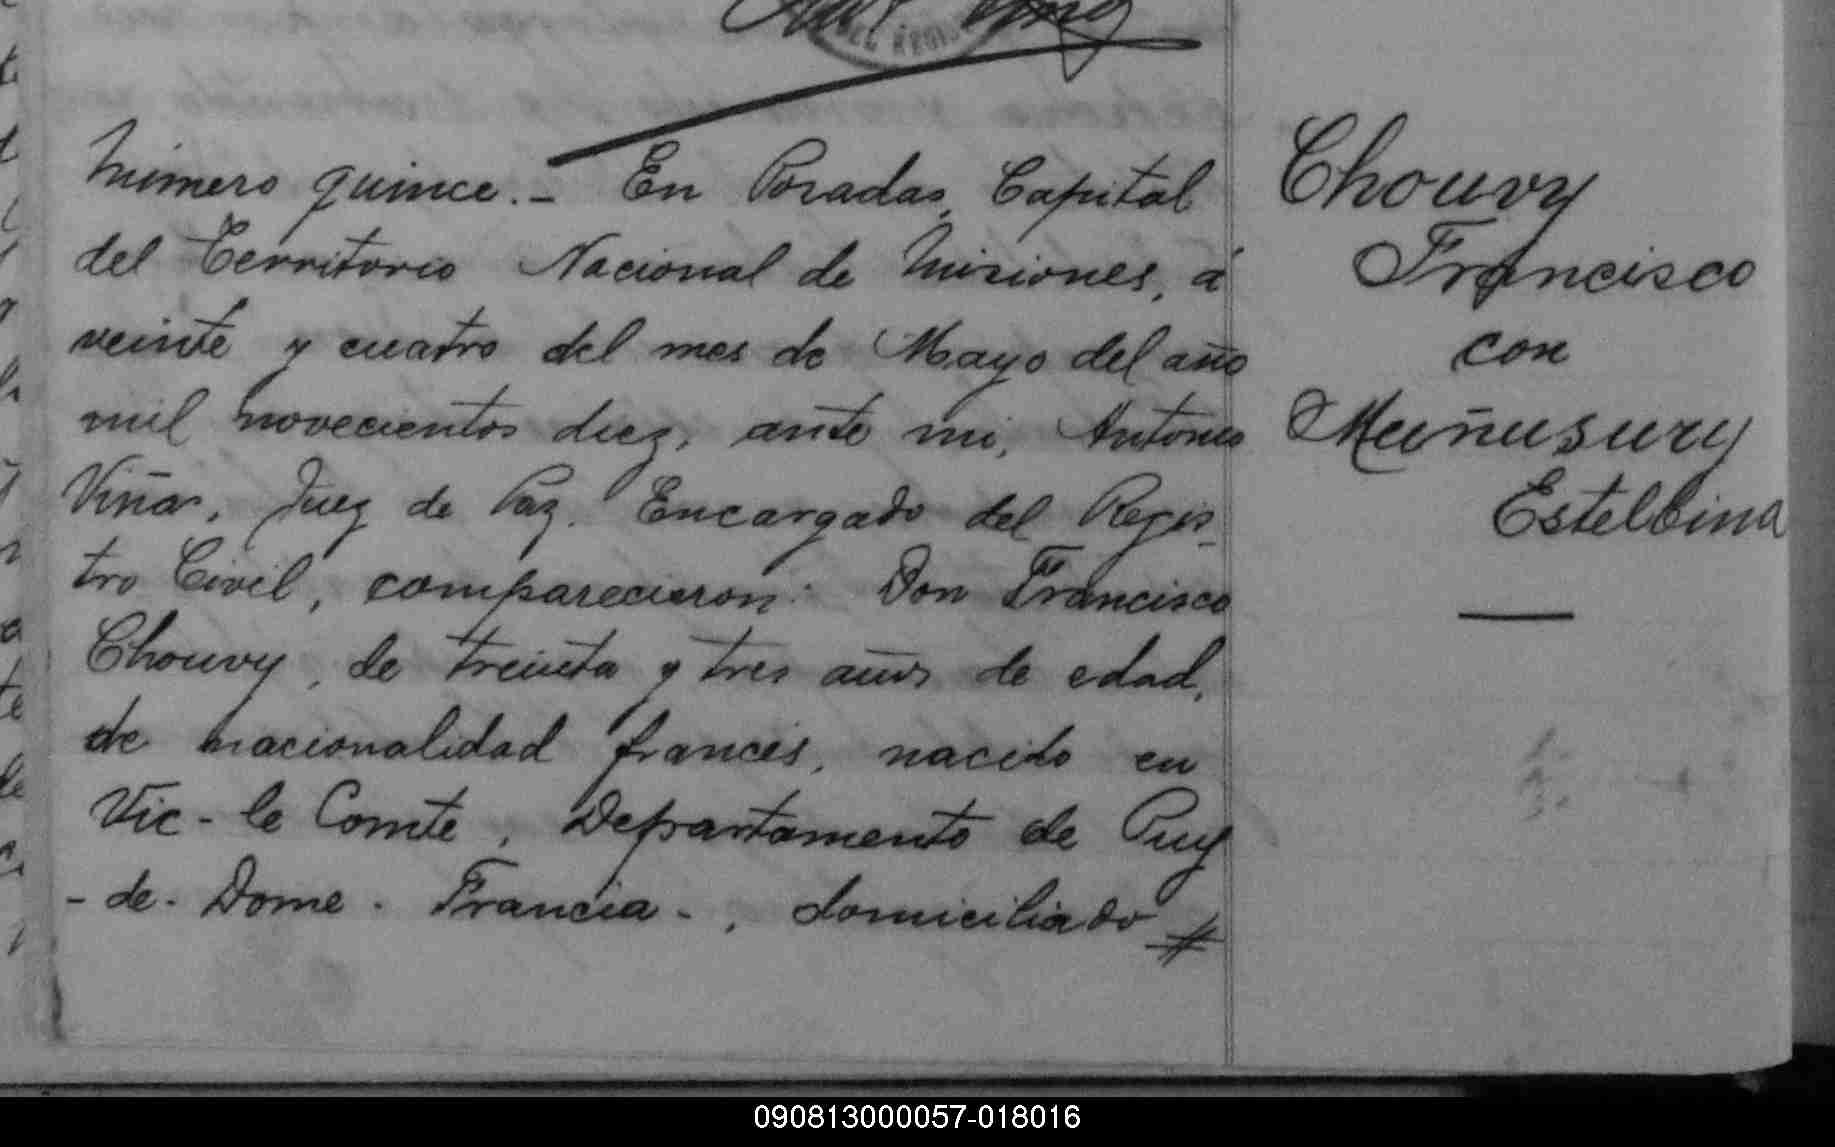 DEL REGIS
Número quince.- En Posadas, Capital
del Territorio Nacional de Misiones, á
veinte y cuatro del mes de Mayo del año
mil novecientos diez, ante mi, Antonio
Viñas, Juez de Paz. Encargado del Regis-
tro Civil, comparecieron: Don Francisco
Chouvy, de treinta y tres años de edad,
de nacionalidad francés, nacido en
Vic-le Comte, Departamento de Puy
-de-Dome-Francia-, domiciliado #
Chouvy
Francisco
con
Muñusury
Estelbina
090813000057-018016